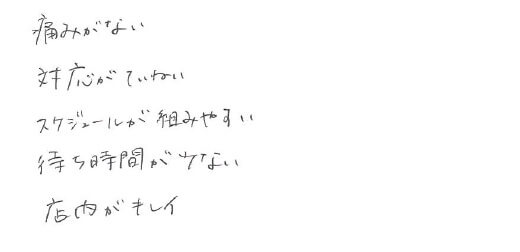 痛みがない
対応がていねい
スケジュールが組みやすい
待ち時間が少ない
店内がキレイ